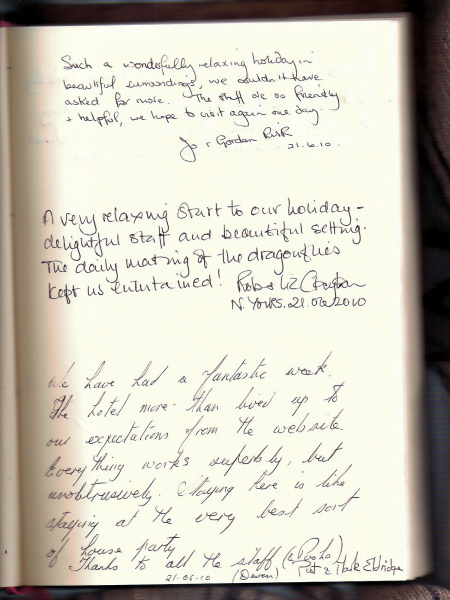 Such a wonderfully relaxing holiday in
beautiful surroundings, we couldn't have
asked for more. The staff are so friendly
+ helpful, we hope to visit again one day.
Jo & Gordon
21.6.10.
A very relaxing start to our holiday -
delightful staff and beautiful setting.
The daily mating of the dragonflies
kept us entertained! Rob & Liz
N. Yorks. 21.06.2010
We have had a fantastic week.
The hotel more than lived up to
our expectations from the website.
Everything works superbly, but
unobtrusively. Staying here is like
staying at the very best sort
of house party
Thanks to all the staff (& Pasha)
21.06.10 (Devon) Pat & Mark Eldridge